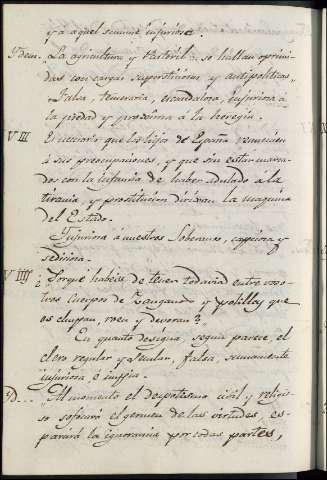 y a aquel sumame. injuriosa.
Idem. La agricultura y Pastoril se hallan oprimi-
das con cargas supersticiosas y antipoliticas,
Falsa, temeraria, escandalosa, injuriosa á
la piedad y proxima á la heregia.
VIII Es necesario que los hijos de España renuncien
á sus preocupaciones, y que sin estar marca-
dos con la infamia de haber adulado á la
tirania, y prostitucion dirijan la maquina
del Estado.
Injuriosa á nuestros Soberanos, capciosa y
sediciosa.
VIIIJ ¿Porqué habeis de tener todavia entre voso-
tros cuerpos de Zanganos y polillas que
os chupan, roen y devoran?
En quanto designa, segun parece, el
clero regular y secular, falsa, sumamente
injuriosa é impia.
Yd... Al momento el despotismo civil y religio-
so sofocará el germen de las virtudes, es-
parcirá la ignorancia por todas partes,